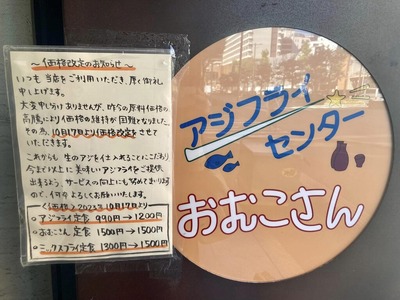 ～価格改定のお知らせ～
いつも当店をご利用いただき、厚く御礼
申し上げます。
大変申し分ありませんが、昨今の原料価格の
高騰により価格の維持が困難となりました
その為、10月17日より価格改定をさせて
いただきます。
これからも生のアジを仕入れることにこだわり
今まで以上に美味しいアジフライをご提供
出来るよう、サービスの向上にも努めてまいります
ので、何卒よろしくお願いいたします。
＜価格＞2023年10月17日より
・アジフライ定食 990円→1200円
・おむこさん定食 1500円→1500円
・ミックスフライ定食 1300円→1500円
アジフライ
センター
おむこさん